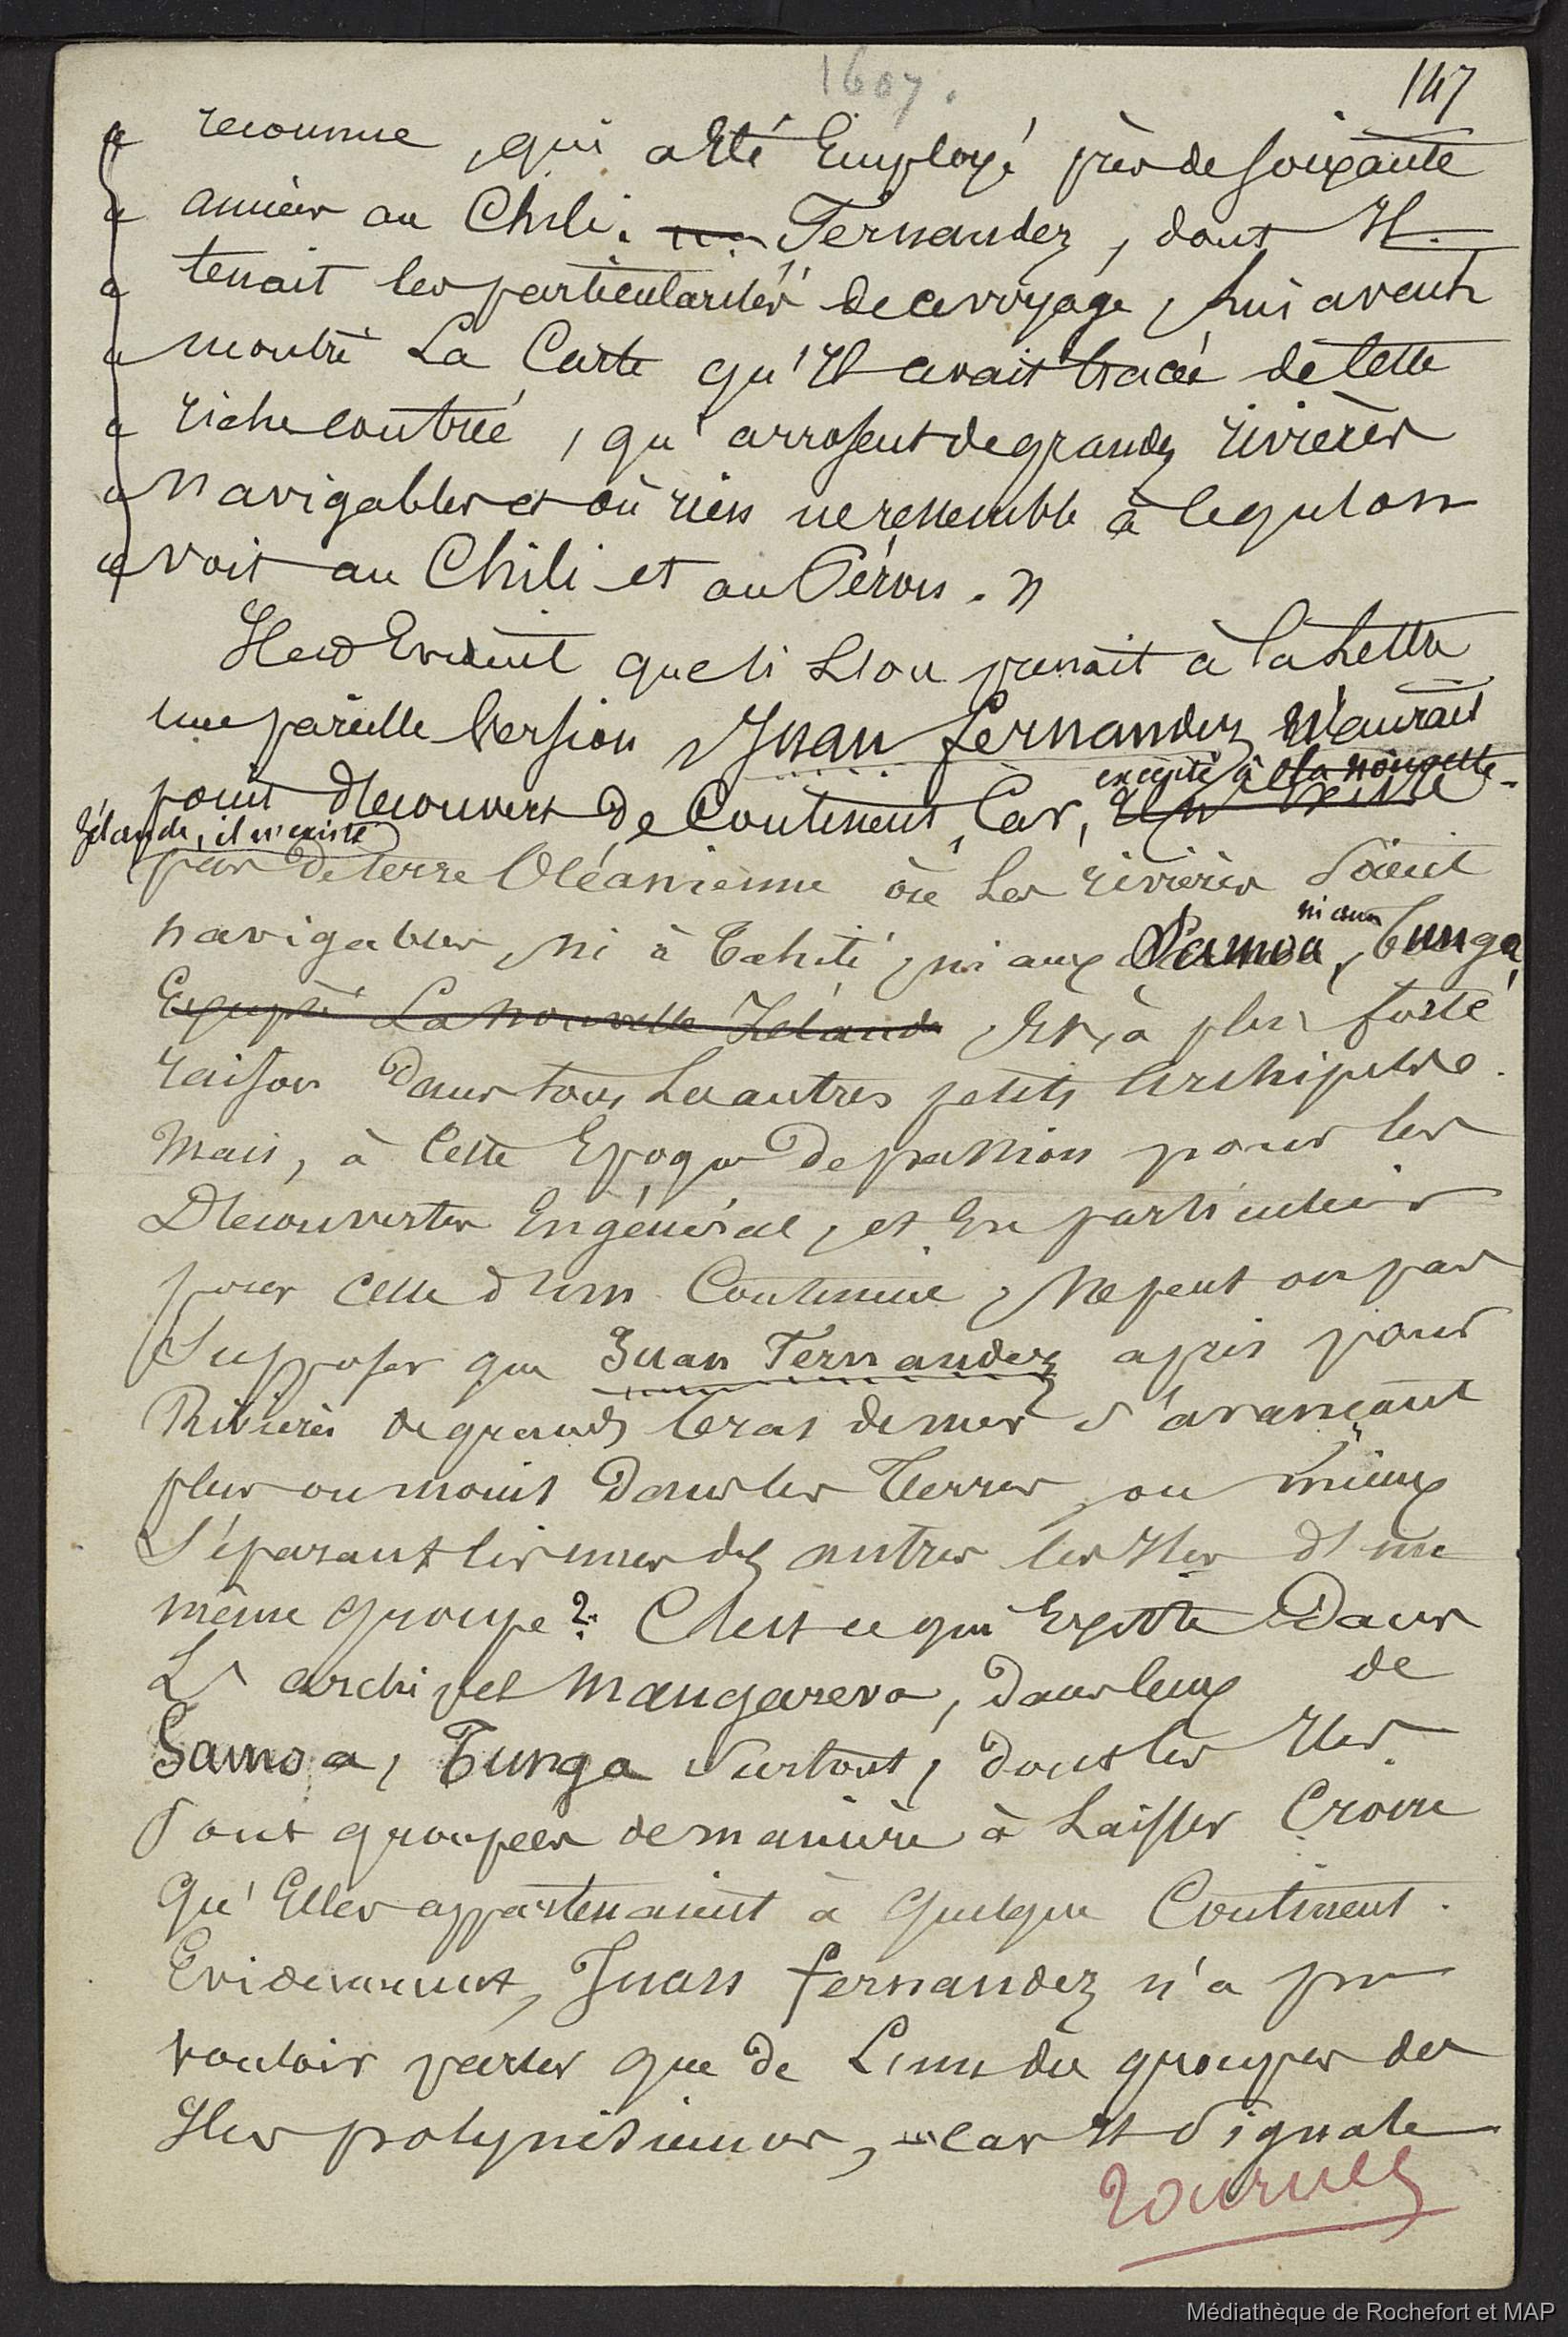 1607.
147
« reconnue, qui a Eté Employé près de soixante
« années au Chili. Fernandez, dont Il
« tenait les particularités de ce voyage, lui avait
« montré La Carte qu'Il avait tracée de Cette
« riche contrée, qu'arrosent de grandes rivières
« navigables et où rien ne ressemble à ce qu'on
« voit au Chili et au Pérou. »
Il est Evident que si L'on prenait à la Lettre
une pareille Version, Juan fernandez n'aurait
excepté à la nouvelle-
point découvert de Continent, Car, Il n'Existe
Zélande, il n'existe
pas de terre Océanienne où Les rivières Soient
ni aux
navigables, ni à Tahiti, ni aux Samoa, Tunga,
Excepté La nouvelle Zélande, Et, à plus forte
raison Dans tous Les autres petits Archipels.
Mais, à Cette Epoque De passion pour les
Découvertes En général, et En particulier
pour celle d'un Continent, Ne peut on pas
Supposer que Juan Fernandez a pris pour
Rivières de grands bras de mer s'avançant
plus ou moins Dans les Terres, ou mieux
Séparant les unes des autres les Iles d'une
même groupe? C'est ce qui Existe Dans
L'archipel Mangareva, Dans ceux de
Samoa, Tunga Surtout, dont les Iles
Sont groupées de manière à Laisser Croire
Qu'Elles appartenaient à Quelque Continent.
Evidemment, Juan fernandez n'a pu
vouloir parler que de L'un des groupes des
Iles polynésiennes, car Il Signale
Tournez
Médiathèque de Rochefort et MAP